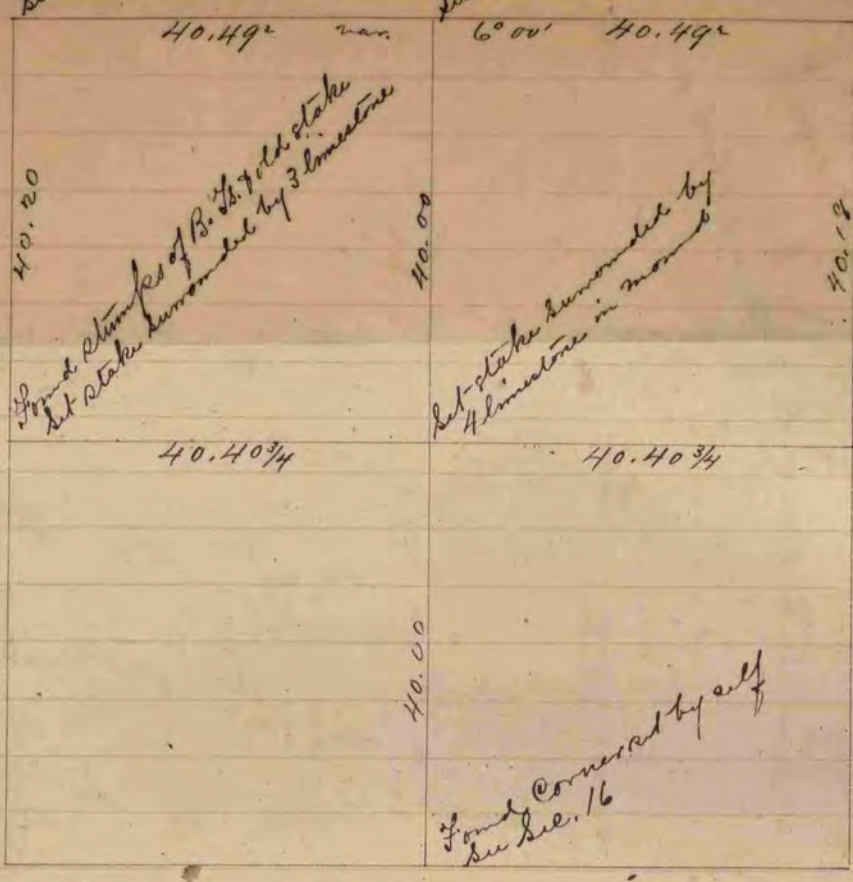 40.49² var. 6° 00' 40.49²
40.20
Found stumps of B. Ts. & old stake
Set stake surrounded by 3 limestone
40.00
Set stake surrounded by
4 limestone in mound
40.18
40.40¾ 40.40¾
40.00
Found Corner set by self
See Sec. 16